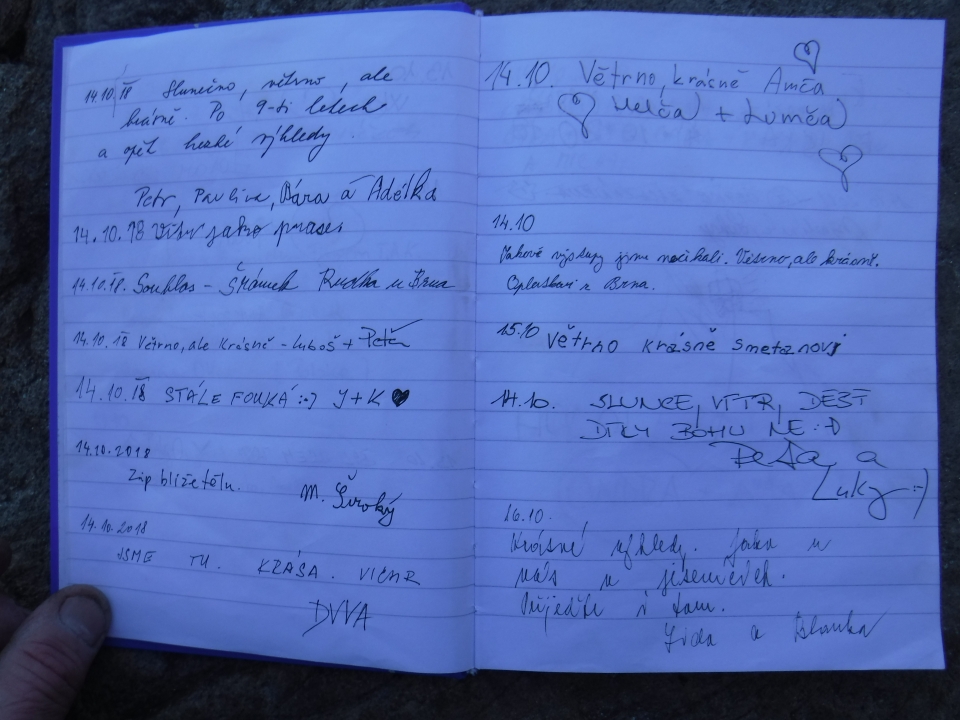 14.10.18 Slunečno, větrno, ale
krásně. Po 9-ti letech
a opět hezké výhledy.
Petr, Pavlína, Bára a Adélka
14.10.18 Vítr jako prase
14.10.18. Souhlas - Šrámek Ruďka u Brna
14.10.18 Větrno, ale krásně - Luboš + Peťa
14.10.18 STÁLE FOUKÁ :-) J+K ♥
14.10.2018
Zip blíže tělu.
M. Široký
14.10.2018
JSME TU. KRÁSA. VICHR
14.10. Větrno, krásně Amča
Verča + Lumča
14.10
Takové výstupy jsme nečekali. Větrno, ale krásně.
z Brna.
15.10 Větrno krásně Smetanovi
14.10. SLUNCE, VÍTR, DÉŠŤ
DÍKY BOHU NE :D
Peťa a
Luky :-)
16.10.
Krásné výhledy. Jako u
nás v Jeseníkách.
Přijeďte i tam.
Jída a Blanka